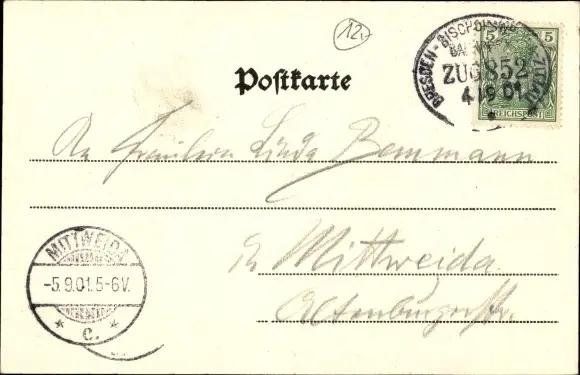 12,-
DRESDEN - BISCHOFSW
5 5
ZUG 852
4 9 01
REICHSPOST
Postkarte
An Fräulein Linda Bemmann
in Mittweida
Altenburgerstr.
MITTWEIDA
-5.9.01.5-6V.
* c. *